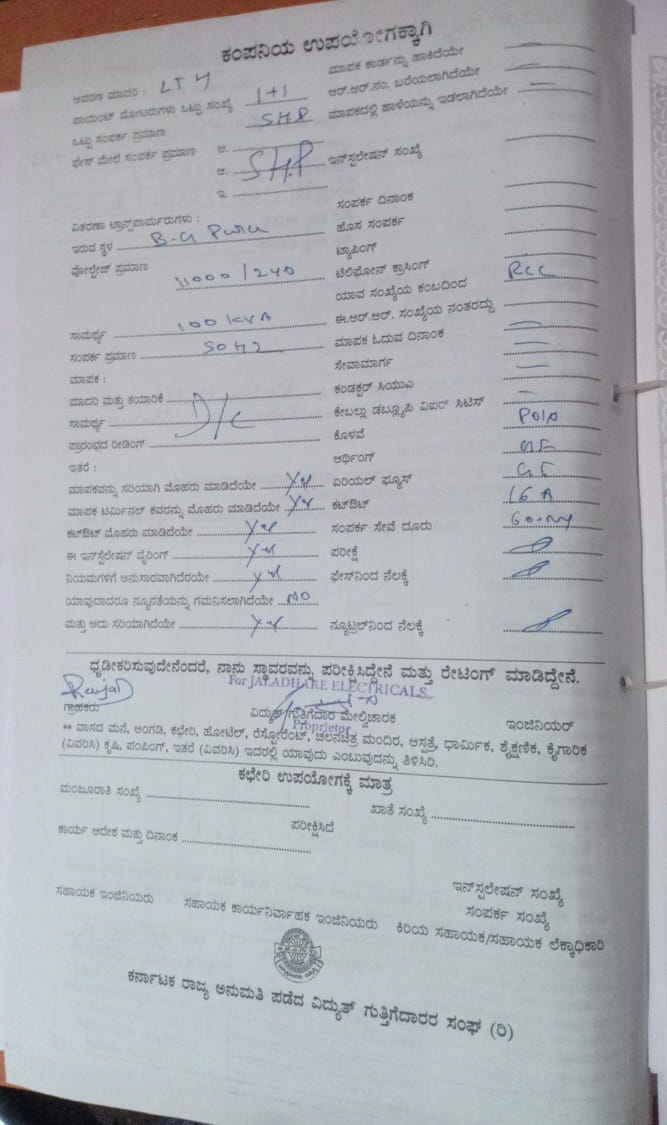 ಕಂಪನಿಯ ಉಪಯೋಗಕ್ಕಾಗಿ
ಆವರಣ ಮಾದರಿ : LT 4 ಮಾಪಕ ಕಾರ್ಡನ್ನು ಹಾಕಿದೆಯೇ
ಪಾಯಿಂಟ್ ಮೋಟರುಗಳು ಒಟ್ಟು ಸಂಖ್ಯೆ 1+1 ಆರ್.ಆರ್.ನಂ. ಬರೆಯಲಾಗಿದೆಯೇ
ಒಟ್ಟು ಸಂಪರ್ಕ ಪ್ರಮಾಣ 5HP ಮಾಪಕದಲ್ಲಿ ಹಾಳೆಯನ್ನು ಇಡಲಾಗಿದೆಯೇ
ಫೇಸ್ ಮೇಲೆ ಸಂಪರ್ಕ ಪ್ರಮಾಣ ಅ.
ಆ. 5H.P ಇನ್‌ಸ್ಟಲೇಷನ್ ಸಂಖ್ಯೆ
ಇ.
ಸಂಪರ್ಕ ದಿನಾಂಕ
ವಿತರಣಾ ಟ್ರಾನ್ಸ್‌ಪಾರ್ಮರುಗಳು : ಹೊಸ ಸಂಪರ್ಕ
ಇರುವ ಸ್ಥಳ B-G ಟ್ಯಾಪಿಂಗ್
ವೋಲ್ಟೇಜ್ ಪ್ರಮಾಣ 11000/240 ಟೆಲಿಫೋನ್ ಕ್ರಾಸಿಂಗ್
ಯಾವ ಸಂಖ್ಯೆಯ ಕಂಬದಿಂದ RCC
ಸಾಮರ್ಥ್ಯ 100 KVA ಈ.ಆರ್.ಆರ್. ಸಂಖ್ಯೆಯ ನಂತರದ್ದು
ಸಂಪರ್ಕ ಪ್ರಮಾಣ 50HZ ಮಾಪಕ ಓದುವ ದಿನಾಂಕ
ಮಾಪಕ : ಸೇವಾಮಾರ್ಗ
ಮಾದರಿ ಮತ್ತು ತಯಾರಿಕೆ ಕಂಡಕ್ಟರ್ ಸಿಯುಎ
ಸಾಮರ್ಥ್ಯ D/C ಕೇಬಲ್ಲು ಡಬ್ಲ್ಯೂಪಿ ವಿಐರ್ ಸಿಟಿಸ್
ಪ್ರಾರಂಭದ ರೀಡಿಂಗ್ ಕೊಳವೆ
ಇತರೆ : ಆರ್ಥಿಂಗ್
ಮಾಪಕವನ್ನು ಸರಿಯಾಗಿ ಮೊಹರು ಮಾಡಿದೆಯೇ Yes ಏರಿಯಲ್ ಫ್ಯೂಸ್
ಮಾಪಕ ಟರ್ಮಿನಲ್ ಕವರನ್ನು ಮೊಹರು ಮಾಡಿದೆಯೇ Yes ಕಟ್‌ಔಟ್ 16 A
ಕಟ್‌ಔಟ್ ಮೊಹರು ಮಾಡಿದೆಯೇ Yes ಸಂಪರ್ಕ ಸೇವೆ ದೂರು
ಈ ಇನ್‌ಸ್ಟೆಲೇಷನ್ ವೈರಿಂಗ್ Yes ಪರೀಕ್ಷೆ
ನಿಯಮಗಳಿಗೆ ಅನುಸಾರವಾಗಿದೆರಯೇ Yes ಫೇಸ್‌ನಿಂದ ನೆಲಕ್ಕೆ
ಯಾವುದಾದರೂ ನ್ಯೂನತೆಯನ್ನು ಗಮನಿಸಲಾಗಿದೆಯೇ NO
ಮತ್ತು ಅದು ಸರಿಯಾಗಿದೆಯೇ Yes ನ್ಯೂಟ್ರಲ್‌ನಿಂದ ನೆಲಕ್ಕೆ
ಧೃಡೀಕರಿಸುವುದೇನೆಂದರೆ, ನಾನು ಸ್ಥಾವರವನ್ನು ಪರೀಕ್ಷಿಸಿದ್ದೇನೆ ಮತ್ತು ರೇಟಿಂಗ್ ಮಾಡಿದ್ದೇನೆ.
For JALADHARE ELECTRICALS
ಗ್ರಾಹಕರು ವಿದ್ಯುತ್ ಗುತ್ತಿಗೆದಾರ ಮೇಲ್ವಿಚಾರಕ ಇಂಜಿನಿಯರ್
Proprietor
** ವಾಸದ ಮನೆ, ಅಂಗಡಿ, ಕಛೇರಿ, ಹೋಟೆಲ್, ರೆಸ್ಟೋರೆಂಟ್, ಚಲನಚಿತ್ರ ಮಂದಿರ, ಆಸ್ಪತ್ರೆ, ಧಾರ್ಮಿಕ, ಶೈಕ್ಷಣಿಕ, ಕೈಗಾರಿಕ
(ವಿವರಿಸಿ) ಕೃಷಿ, ಪಂಪಿಂಗ್, ಇತರೆ (ವಿವರಿಸಿ) ಇದರಲ್ಲಿ ಯಾವುದು ಎಂಬುವುದನ್ನು ತಿಳಿಸಿರಿ.
ಕಛೇರಿ ಉಪಯೋಗಕ್ಕೆ ಮಾತ್ರ
ಮಂಜೂರಾತಿ ಸಂಖ್ಯೆ ಖಾತೆ ಸಂಖ್ಯೆ
ಕಾರ್ಯ ಆದೇಶ ಮತ್ತು ದಿನಾಂಕ ಪರೀಕ್ಷಿಸಿದೆ
ಇನ್‌ಸ್ಟಲೇಷನ್ ಸಂಖ್ಯೆ
ಸಂಪರ್ಕ ಸಂಖ್ಯೆ
ಸಹಾಯಕ ಇಂಜಿನಿಯರು ಸಹಾಯಕ ಕಾರ್ಯನಿರ್ವಾಹಕ ಇಂಜಿನಿಯರು ಕಿರಿಯ ಸಹಾಯಕ/ಸಹಾಯಕ ಲೆಕ್ಕಾಧಿಕಾರಿ
ಕರ್ನಾಟಕ ರಾಜ್ಯ ಅನುಮತಿ ಪಡೆದ ವಿದ್ಯುತ್ ಗುತ್ತಿಗೆದಾರರ ಸಂಘ (ರಿ)